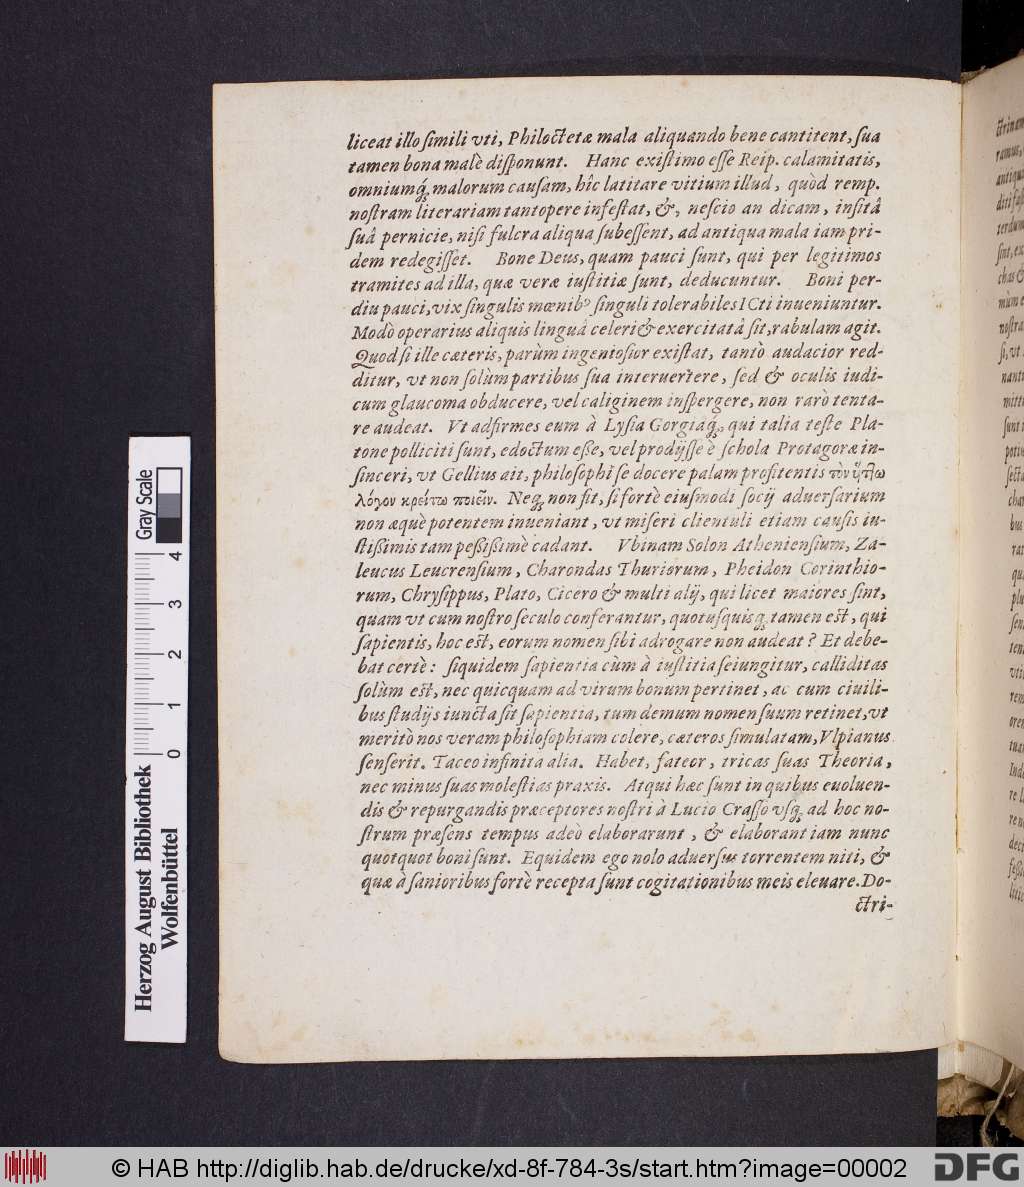 liceat illo ſimili vti, Philoctetæ mala aliquando bene cantitent, ſua
tamen bona malè diſponunt. Hanc exiſtimo eſſe Reip. calamitatis,
omniumq́; malorum cauſam, hîc latitare vitium illud, quòd remp.
noſtram literariam tantopere infeſtat, &, neſcio an dicam, inſitâ
ſuâ pernicie, niſi fulcra aliqua ſubeſſent, ad antiqua mala iam pri-
dem redegiſſet. Bone Deus, quam pauci ſunt, qui per legitimos
tramites ad illa, quæ veræ iuſtitiæ ſunt, deducuntur. Boni per-
diu pauci, vix ſingulis mœnibꝰ ſinguli tolerabiles ICti inueniuntur.
Modò operarius aliquis linguâ celeri & exercitatâ ſit, rabulam agit.
Quod ſi ille cæteris, parùm ingenioſior exiſtat, tantò audacior red-
ditur, vt non ſolùm partibus ſua interuertere, ſed & oculis iudi-
cum glaucoma obducere, vel caliginem inſpergere, non rarò tenta-
re audeat. Vt adfirmes eum à Lyſia Gorgiaq́;, qui talia teſte Pla-
tone polliciti ſunt, edoctum eße, vel prodijſſe è ſchola Protagoræ in-
ſinceri, vt Gellius ait, philoſophi ſe docere palam profitentis τὸν ἥττω
λόγον κρείτω ποιεῖν. Neq; non fit, ſi fortè eiuſmodi ſocij aduerſarium
non æquè potentem inueniant, vt miſeri clientuli etiam cauſis iu-
ſtißimis tam peßißimè cadant. Vbinam Solon Athenienſium, Za-
leucus Leucrenſium, Charondas Thuriorum, Pheidon Corinthio-
rum, Chryſippus, Plato, Cicero & multi alij, qui licet maiores ſint,
quam vt cum noſtro ſeculo conferantur, quotuſquisq; tamen eſt, qui
ſapientis, hoc eſt, eorum nomen ſibi adrogare non audeat? Et debe-
bat certè: ſiquidem ſapientia cùm à iuſtitia ſeiungitur, calliditas
ſolùm eſt, nec quicquam ad virum bonum pertinet, ac cum ciuili-
bus ſtudijs iuncta ſit ſapientia, tum demum nomen ſuum retinet, vt
meritò nos veram philoſophiam colere, cæteros ſimulatam, Vlpianus
ſenſerit. Taceo infinita alia. Habet, fateor, tricas ſuas Theoria,
nec minus ſuas moleſtias praxis. Atqui hæc ſunt in quibus euoluen-
dis & repurgandis præceptores noſtri à Lucio Craſſo vſq; ad hoc no-
ſtrum præſens tempus adeò elaborarunt, & elaborant iam nunc
quotquot boni ſunt. Equidem ego nolo aduerſus torrentem niti, &
quæ à ſanioribus fortè recepta ſunt cogitationibus meis eleuare. Do-
ctri-
Herzog August Bibliothek
Wolfenbüttel
Gray Scale
0 1 2 3 4
© HAB http://diglib.hab.de/drucke/xd-8f-784-3s/start.htm?image=00002
DFG